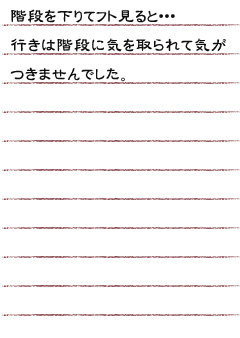 階段を下りてフト見ると・・・
行きは階段に気を取られて気が
つきませんでした。